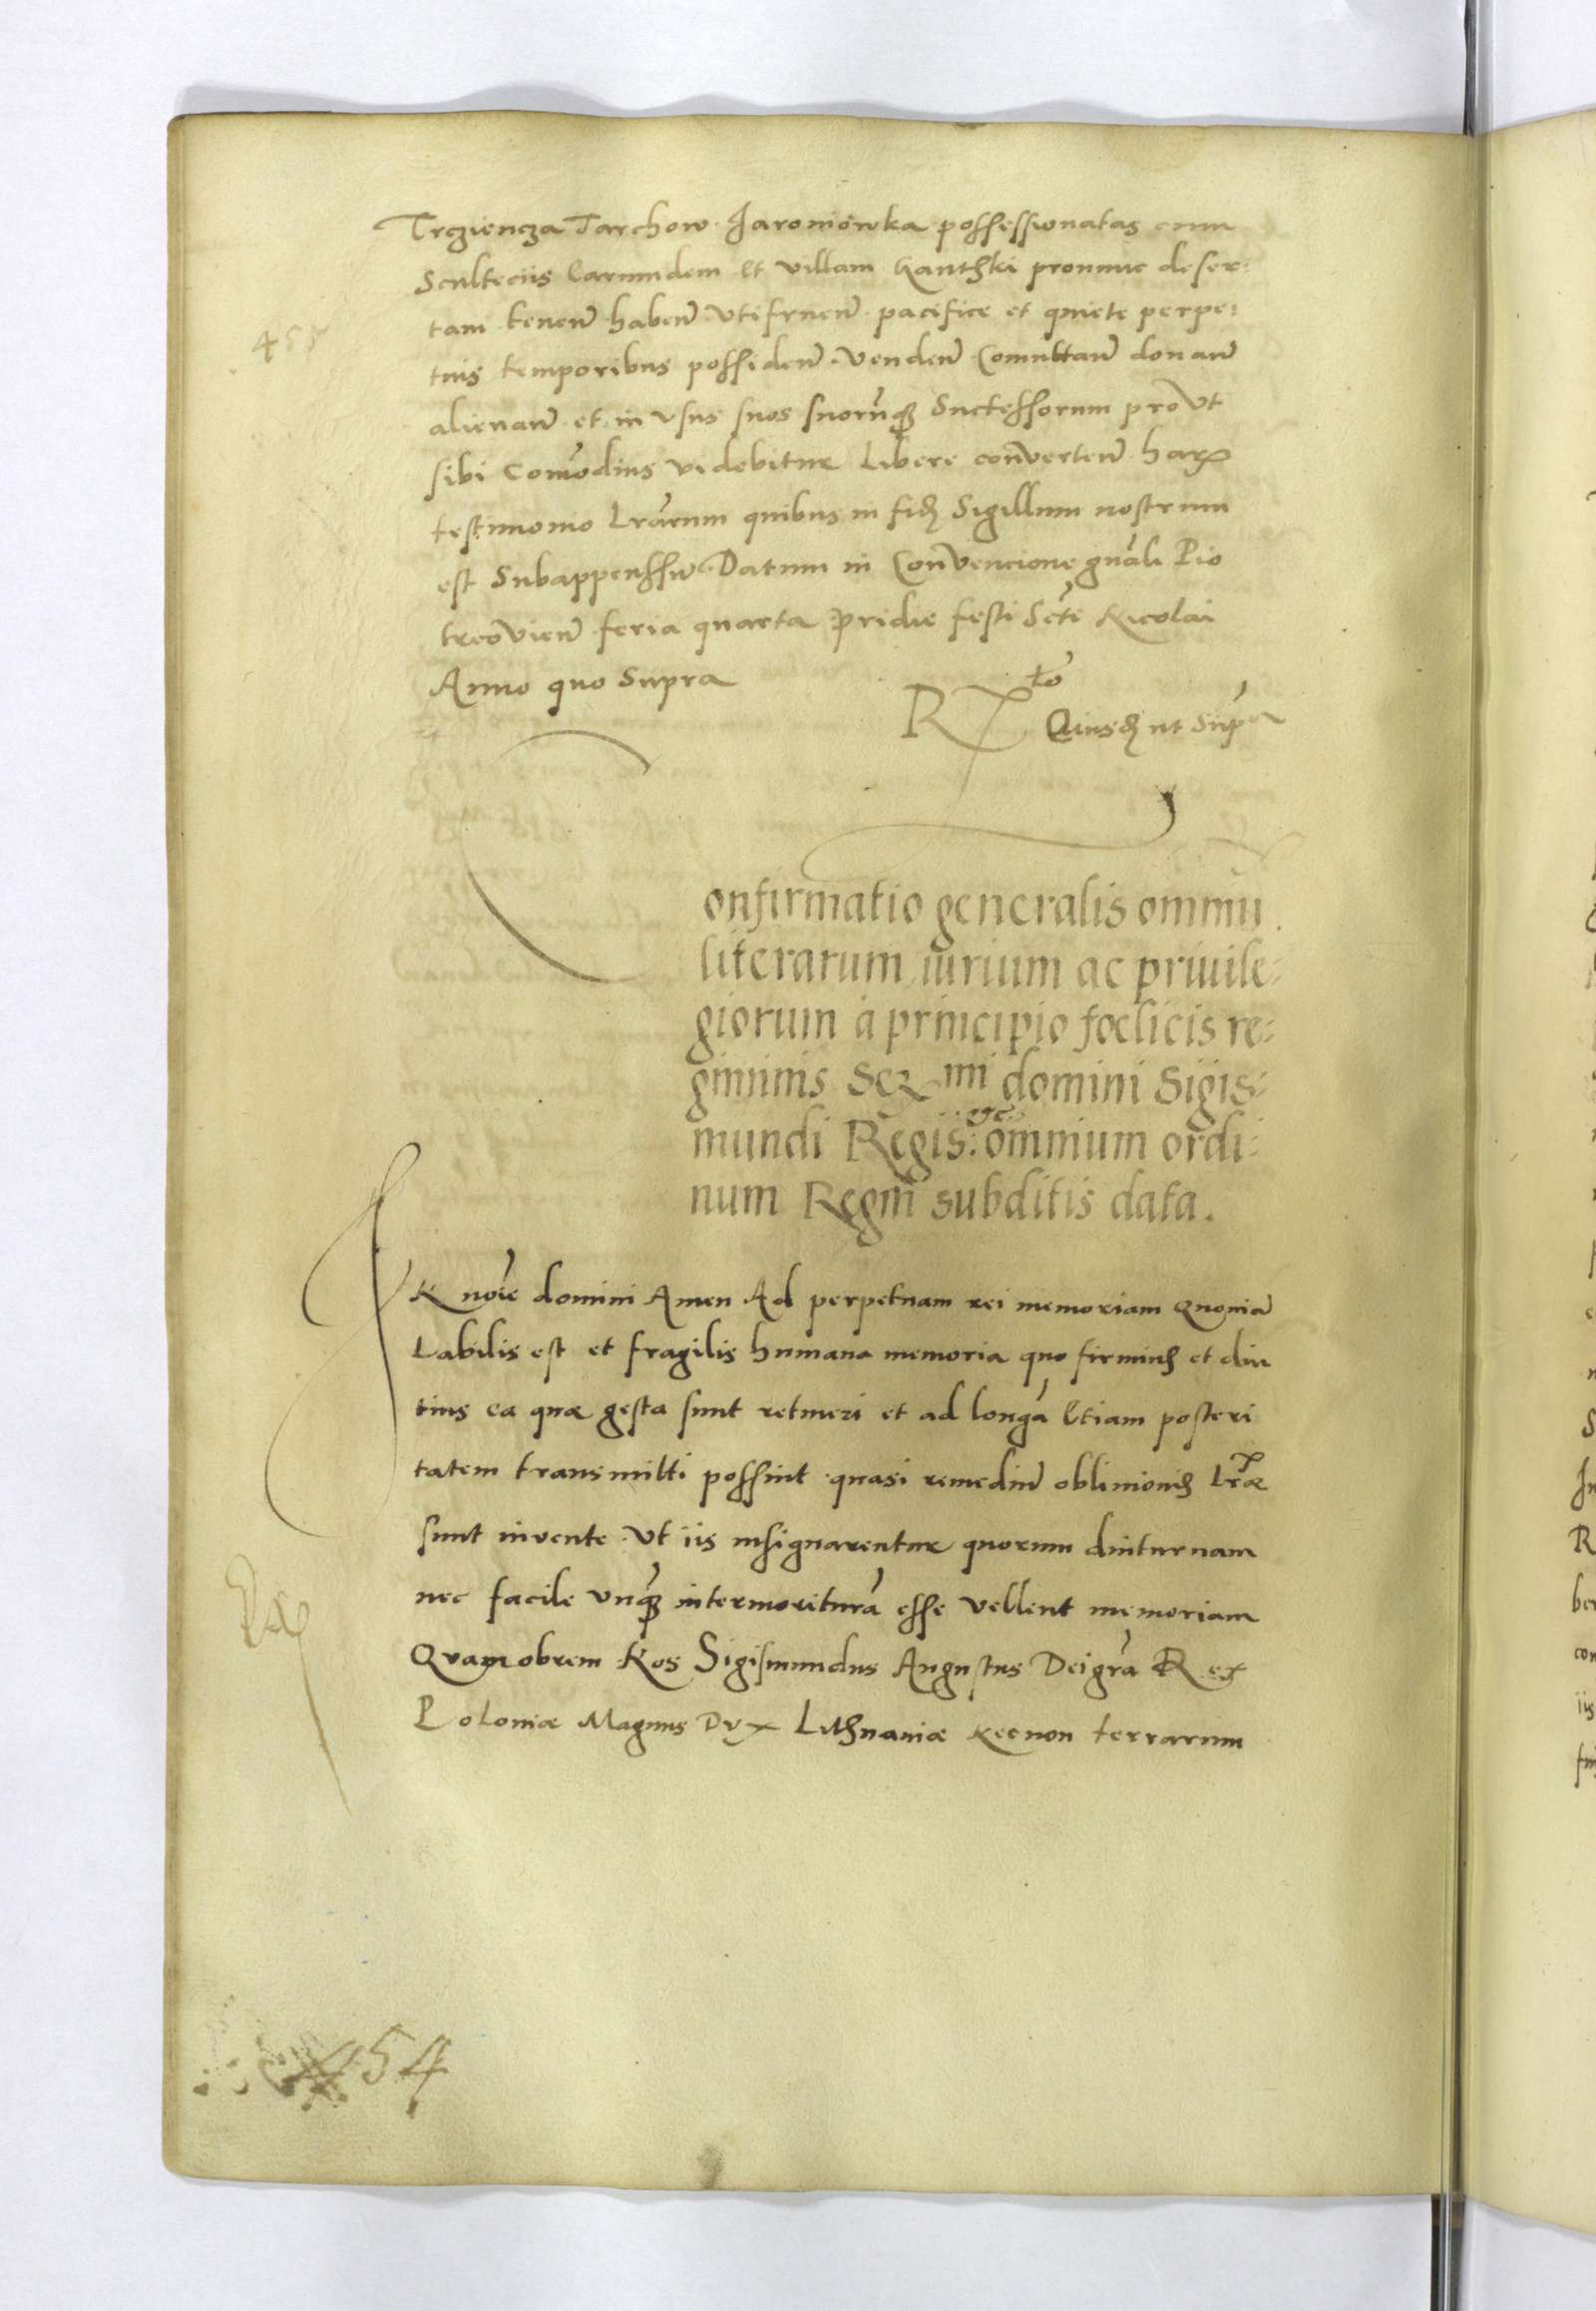 Trziencza Tarchow Jaroniowka possessionatas cum
Sculteciis Earumdem Et villam Hanthki pronunc deser:
tam tenend habend Utifruend pacifice et quiete perpe:
455
tuis temporibus possidend Vendend Comuttand donand
alienand et in Usus suos suorūq; Successorum proVt
sibi Comodius videbitur Libere convertend har
testimonio Lrarum quibus in fid Sigillum nostrum
est Subappenssu Datum in Convencione gnali Pio
trcovien feria quarta pridie festi Scti Nicolai
Anno quo Supra
R to
Eiusd ut Supra
onfirmatio generalis omniū
literarum iurium ac priuile:
giorum à principio foelicis re:
giminis Ser mi domini Sigis:
mundi Regis: etc. omnium ordi:
num Regni subditis data.
IN noīe domini Amen Ad perpetuam rei memoriam Quoniā
Labilis est et fragilis humana memoria quo firmius et diu
tius ea quæ gesta sunt retineri et ad longā Etiam posteri
tatem transmitti possint quasi remediū oblivionis Lræ
sunt invente Vt iis insignarentur quorum diuturnam
nec facile Vnq; intermoriturā esse Vellent memoriam
Quamobrem Nos Sigismundus Augustus Dei grā Rex
Poloniæ Magnus Dux Lithuaniæ Necnon terrarum
454